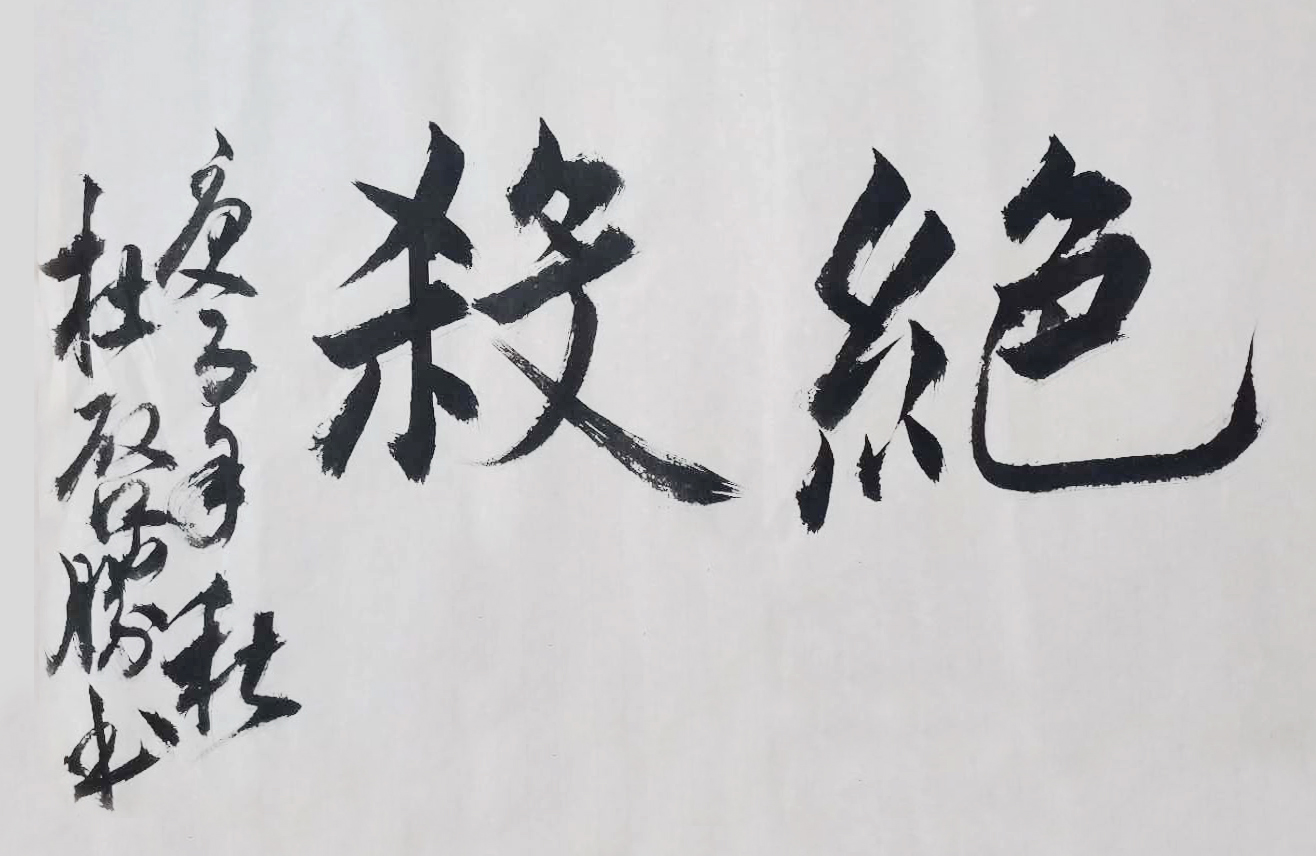 絕殺
庚子年秋
杜啓勝书